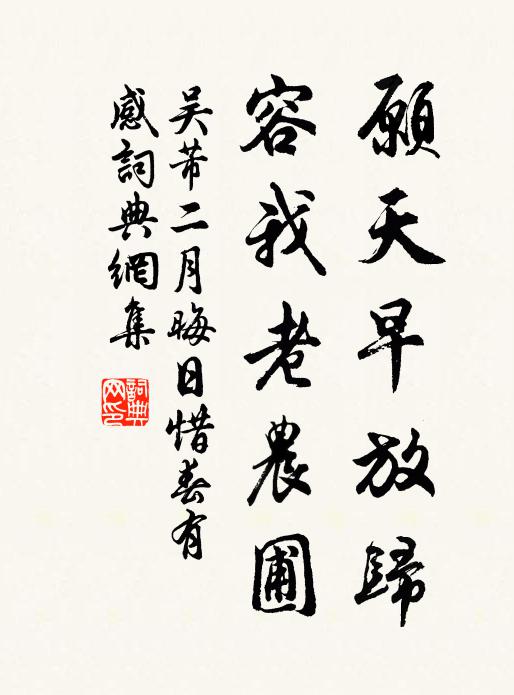 願天早放歸
容我老農圃
吴芾二月晦日惜春有
感詞典網集
詞典
网印